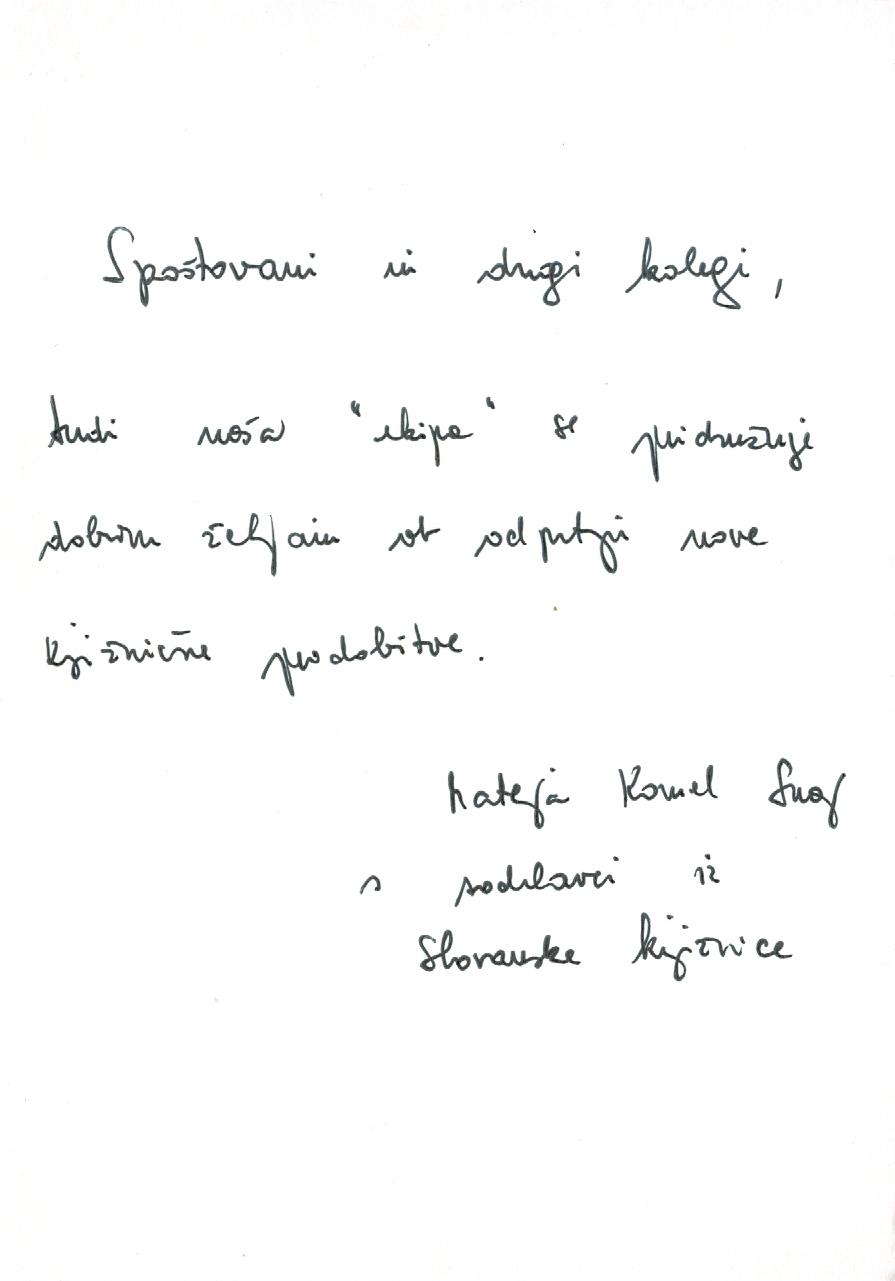 Spoštovani in dragi kolegi,
tudi naša "ekipa" se pridružuje
dobrim željam ob odprtju nove
knjižnične pridobitve.
Mateja Komel Snoj
s sodelavci iz
Slovanske knjižnice